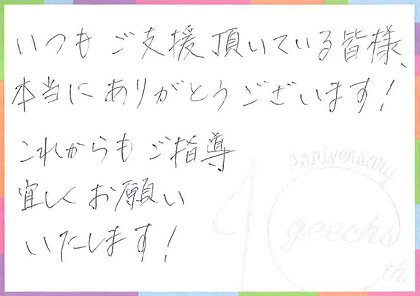 いつもご支援頂いている皆様、
本当にありがとうございます!
これからもご指導
宜しくお願い
いたします!
Anniversary
10
geechs
th